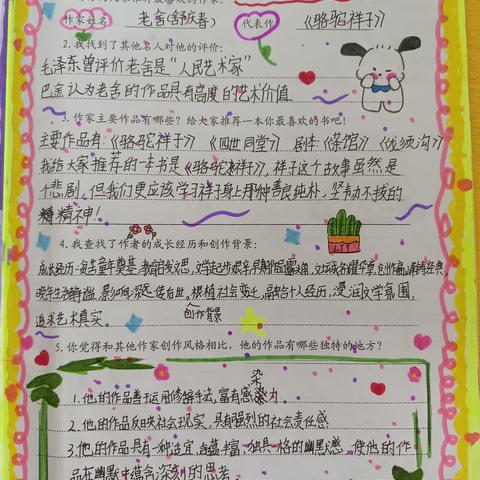 作家姓名 老舍(舒庆春) 代表作 《骆驼祥子》
2. 我找到了其他名人对他的评价:
毛泽东曾评价老舍是“人民艺术家”
巴金认为老舍的作品具有高度的艺术价值
3. 作家主要作品有哪些? 给大家推荐一本你最喜欢的书吧!
主要作品有:《骆驼祥子》《四世同堂》 剧本:《茶馆》《龙须沟》
我给大家推荐的一本书是《骆驼祥子》,祥子这个故事虽然是
个悲剧,但我们更应该学习祥子身上那种善良纯朴、坚韧不拔的
精神!
4. 我查找了作者的成长经历和创作背景:
成长经历
影响深远 根植社会变迁,融合个人经历,浸润文学氛围,
追求艺术真实。 创作背景
5. 你觉得和其他作家创作风格相比,他的作品有哪些独特的地方?
染
1. 他的作品善于运用修辞手法,富有感力。
2. 他的作品反映社会现实,具有强烈的社会责任感
3. 他的作品具有一种适宜、丰富、独具一格的幽默感,使他的作
品在幽默中蕴含深刻的思考